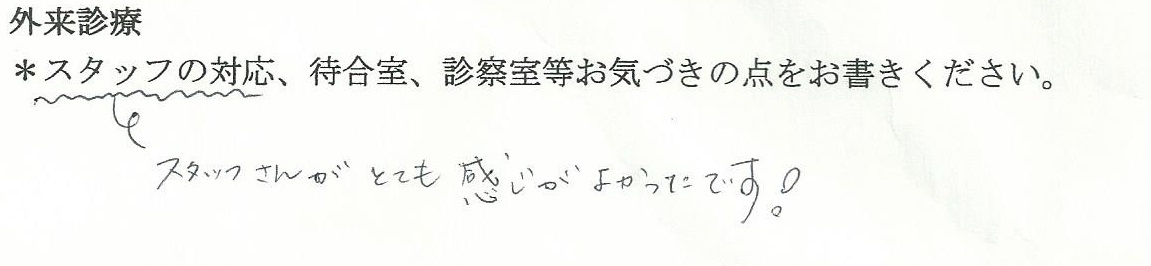 外来診療
＊スタッフの対応、待合室、診察室等お気づきの点をお書きください。
スタッフさんがとても感じがよかったです!